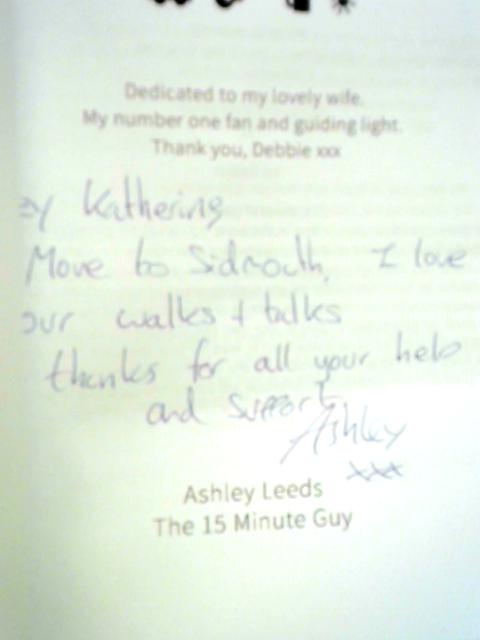 Dedicated to my lovely wife.
My number one fan and guiding light.
Thank you, Debbie xxx
Katherine
Move to Sidmouth, I love
our walks + talks
thanks for all your help
and support
Ashley
xxx
Ashley Leeds
The 15 Minute Guy